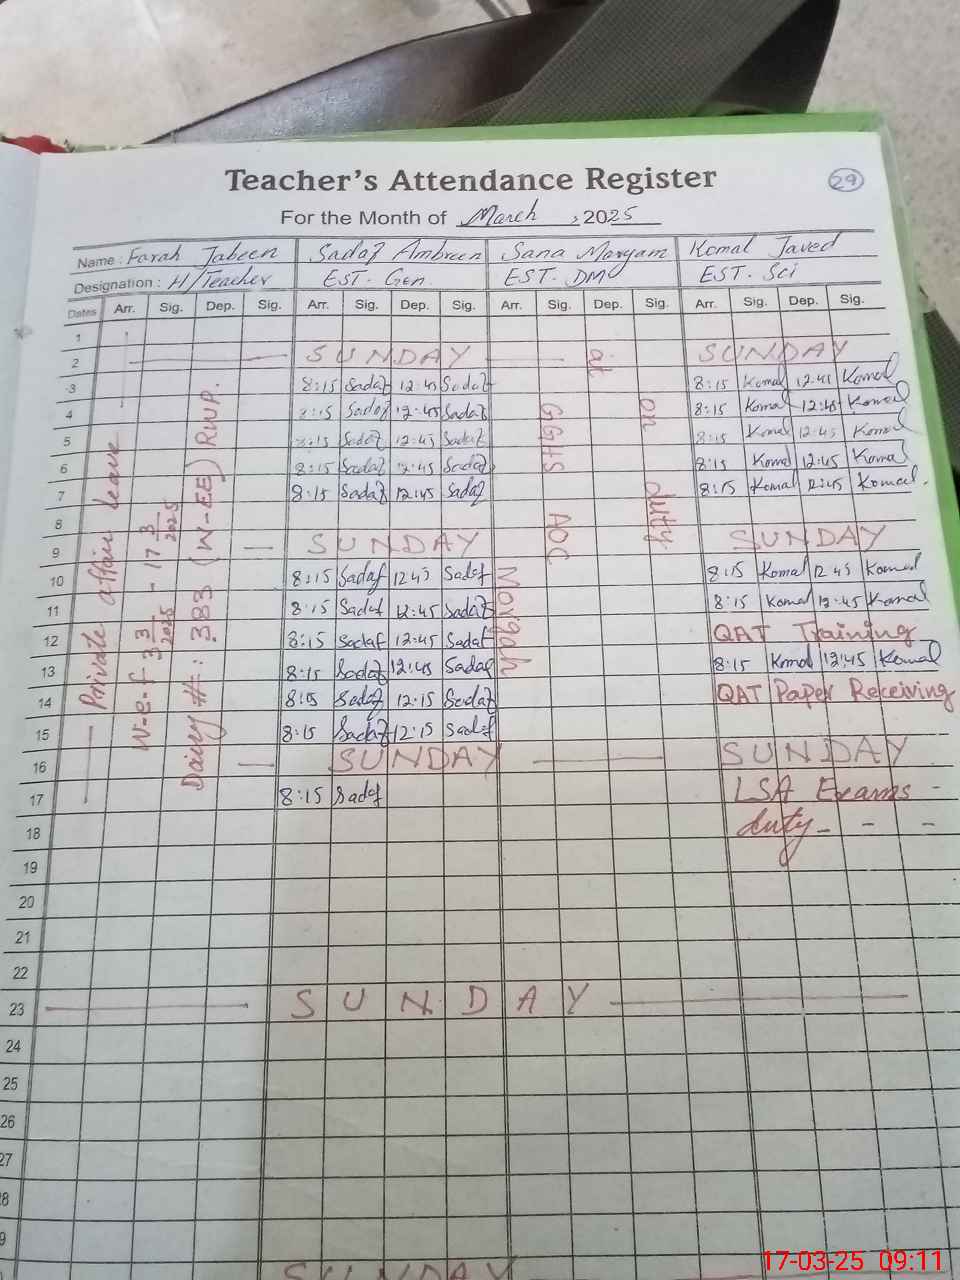 Teacher's Attendance Register
29
For the Month of March , 2025
Name : Farah Jabeen Sadaf Ambreen Sana Maryam Komal Javed
Designation : H/Teacher EST. Gen. EST. DM EST. Sci
Dates Arr. Sig. Dep. Sig. Arr. Sig. Dep. Sig. Arr. Sig. Dep. Sig. Arr. Sig. Dep. Sig.
Private affair leave
W-e-f 3 3/2025 - 17 3/2025
Dairy #: 383 (W-EE) RWP.
on duty
at
GGHS AOC
Morgah
1
2 SUNDAY SUNDAY
3 8:15 Sadaf 12:45 Sadaf 8:15 Komal 12:45 Komal
4 8:15 Sadaf 12:45 Sadaf 8:15 Komal 12:45 Komal
5 8:15 Sadaf 12:45 Sadaf 8:15 Komal 12:45 Komal
6 8:15 Sadaf 12:45 Sadaf 8:15 Komal 12:45 Komal
7 8:15 Sadaf 12:45 Sadaf 8:15 Komal 12:45 Komal.
8
9 SUNDAY SUNDAY
10 8:15 Sadaf 12 45 Sadaf 8:15 Komal 12 45 Komal
11 8:15 Sadaf 12:45 Sadaf 8:15 Komal 12:45 Komal
12 8:15 Sadaf 12:45 Sadaf QAT Training
13 8:15 Sadaf 12:45 Sadaf 8:15 Komal 12:45 Komal
14 8:15 Sadaf 12:15 Sadaf QAT Paper Receiving
15 8:15 Sadaf 12:15 Sadaf
16 SUNDAY SUNDAY
17 8:15 Sadaf LSA Exams -
18 duty - - -
19
20
21
22
23 SUNDAY
24
25
26
27
28
29
SUNDAY
17-03-25 09:11